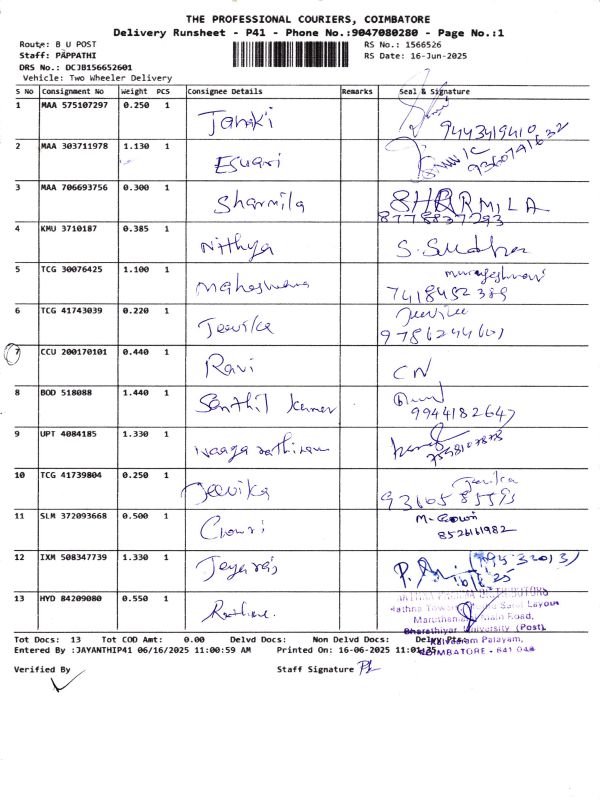 THE PROFESSIONAL COURIERS, COIMBATORE
Delivery Runsheet - P41 - Phone No.:9047080280 - Page No.:1
Route: B U POST RS No.: 1566526
Staff: PAPPATHI RS Date: 16-Jun-2025
DRS No.: DCJB156652601
Vehicle: Two Wheeler Delivery
S No Consignment No Weight PCS Consignee Details Remarks Seal & Signature
1 MAA 575107297 0.250 1 Janaki 9443419410
2 MAA 303711978 1.130 1 Esuari 9360741632
3 MAA 706693756 0.300 1 Sharmila SHARMILA
8778837293
4 KMU 3710187 0.385 1 Nithya S. Sudha
5 TCG 30076425 1.100 1 Maheswara
7418452389
6 TCG 41743039 0.220 1 Jeevika
9786244601
7 CCU 200170101 0.440 1 Ravi CN
8 BOD 518088 1.440 1 Senthil Kumar
9944182647
9 UPT 4084185 1.330 1
7598107878
10 TCG 41739804 0.250 1 Jeevika
11 SLM 372093668 0.500 1 Gowri M. Gowri
8526161982
12 IXM 508347739 1.330 1 Jeyaraj
13 HYD 84209080 0.550 1
Main Road,
Bharathiyar University (Post),
Kalveeram Palayam,
COIMBATORE - 641 046
Tot Docs: 13 Tot COD Amt: 0.00 Delvd Docs: Non Delvd Docs: Delvy Pts:
Entered By :JAYANTHIP41 06/16/2025 11:00:59 AM Printed On: 16-06-2025 11:01:35
Verified By Staff Signature